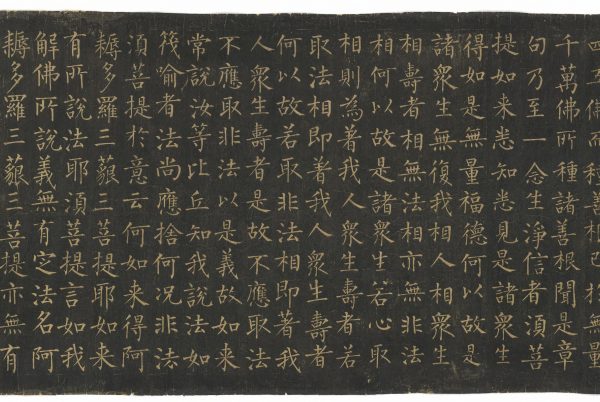 四五佛而種善根已於無量
千萬佛所種諸善根聞是章
句乃至一念生淨信者須菩
提如来悉知悉見是諸衆生
得如是無量福德何以故是
諸衆生無復我相人相衆生
相壽者相無法相亦無非法
相何以故是諸衆生若心取
相則為著我人衆生壽者若
取法相即著我人衆生壽者
何以故若取非法相即著我
人衆生壽者是故不應取法
不應取非法以是義故如来
常說汝等比丘知我說法如
筏喻者法尚應捨何況非法
須菩提於意云何如来得阿
耨多羅三藐三菩提耶如来
有所說法耶須菩提言如我
解佛所說義無有定法名阿
耨多羅三藐三菩提亦無有